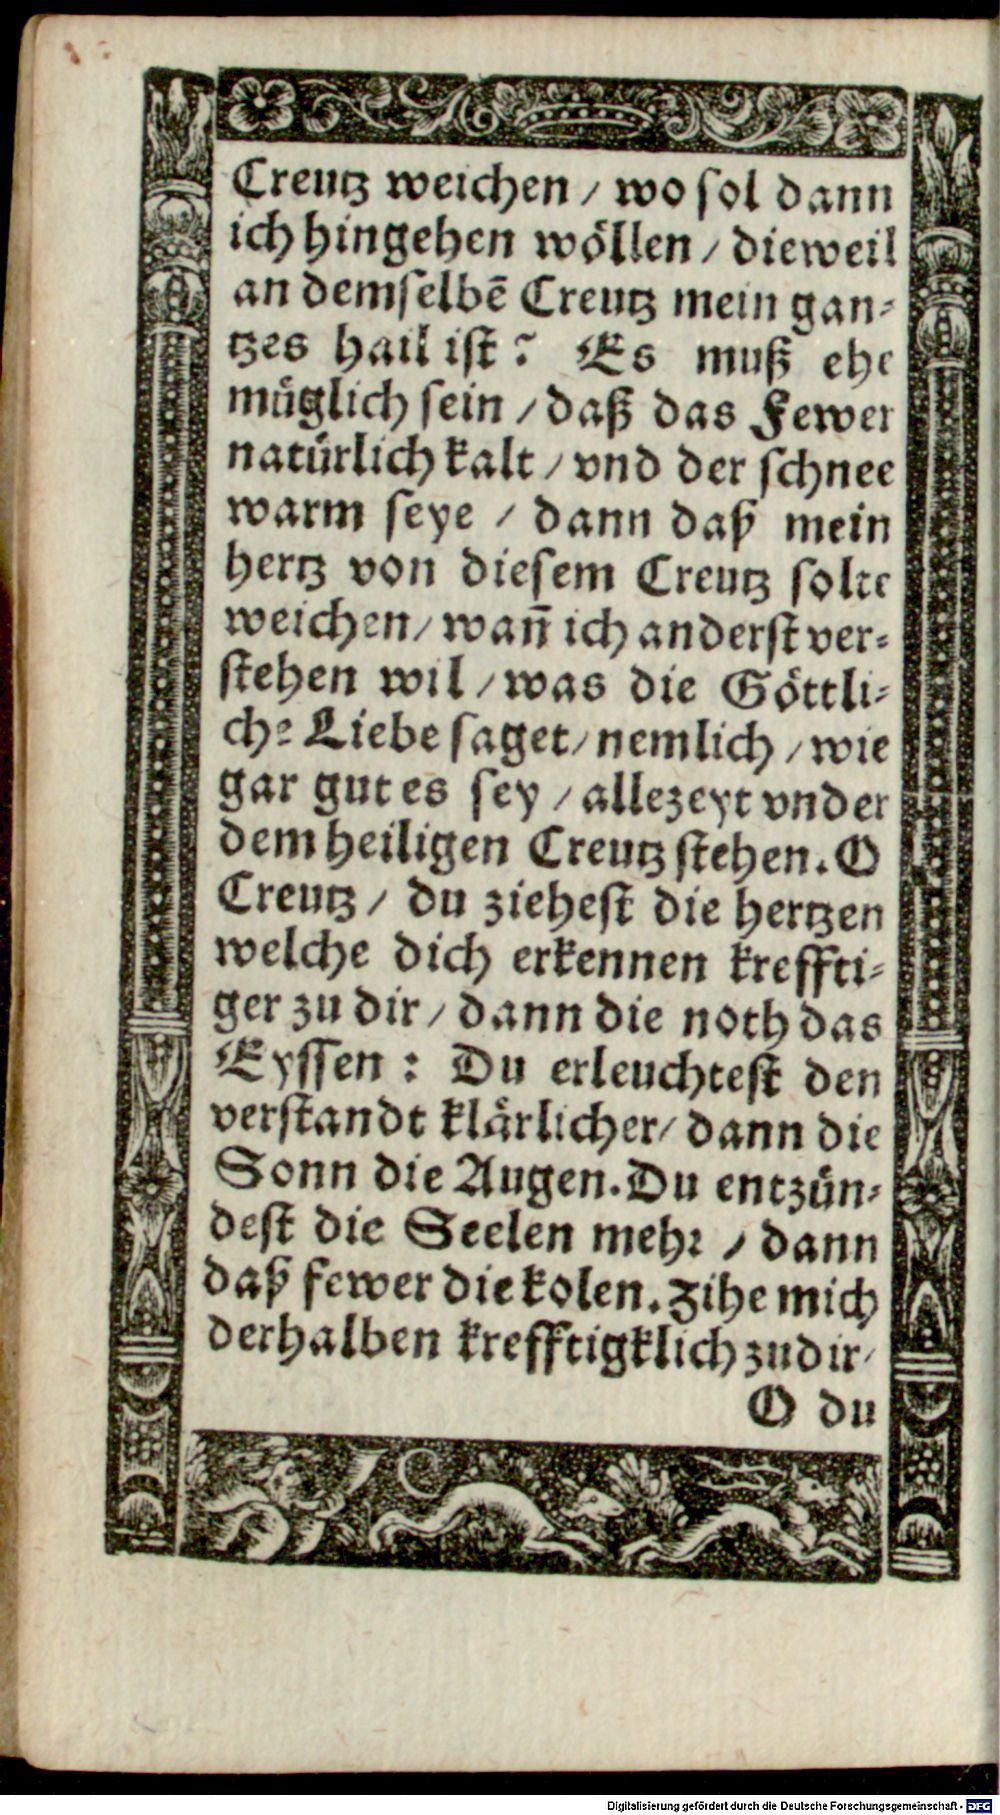 Creutz weichen / wo sol dann
ich hingehen wöllen / dieweil
an demselbē Creutz mein gan-
tzes hail ist? Es muß ehe
müglich sein / daß das Fewer
natürlich kalt / vnd der schnee
warm seye / dann daß mein
hertz von diesem Creutz solte
weichen / wañ ich anderst ver-
stehen wil / was die Göttli-
che Liebe saget / nemlich / wie
gar gut es sey / allezeyt vnder
dem heiligen Creutz stehen. O
Creutz / du ziehest die hertzen
welche dich erkennen kreffti-
ger zu dir / dann die noth das
Eyssen : Du erleuchtest den
verstandt klärlicher / dann die
Sonn die Augen. Du entzün-
dest die Seelen mehr / dann
daß fewer die kolen. Zihe mich
derhalben krefftigklich zu dir /
O du
Digitalisierung gefördert durch die Deutsche Forschungsgemeinschaft - DFG